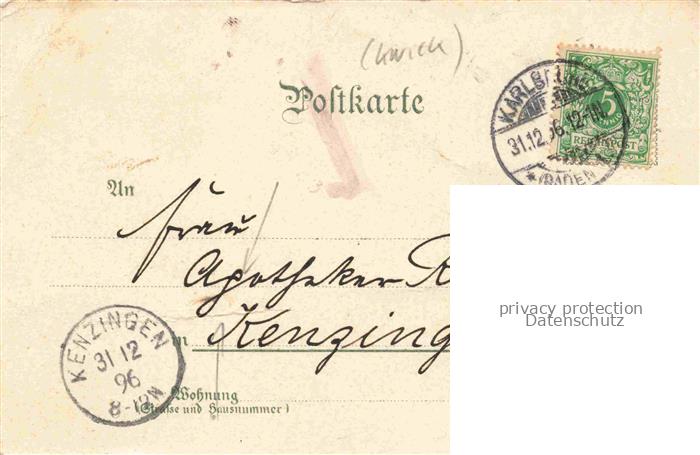 Postkarte
KARLSRUHE
31.12.96.12-1N
(BADEN
5
REICHSPOST
An
Frau
Apotheker R
in Kenzing
KENZINGEN
31 12
96
8-12N
Wohnung
(Straße und Hausnummer)
privacy protection
Datenschutz